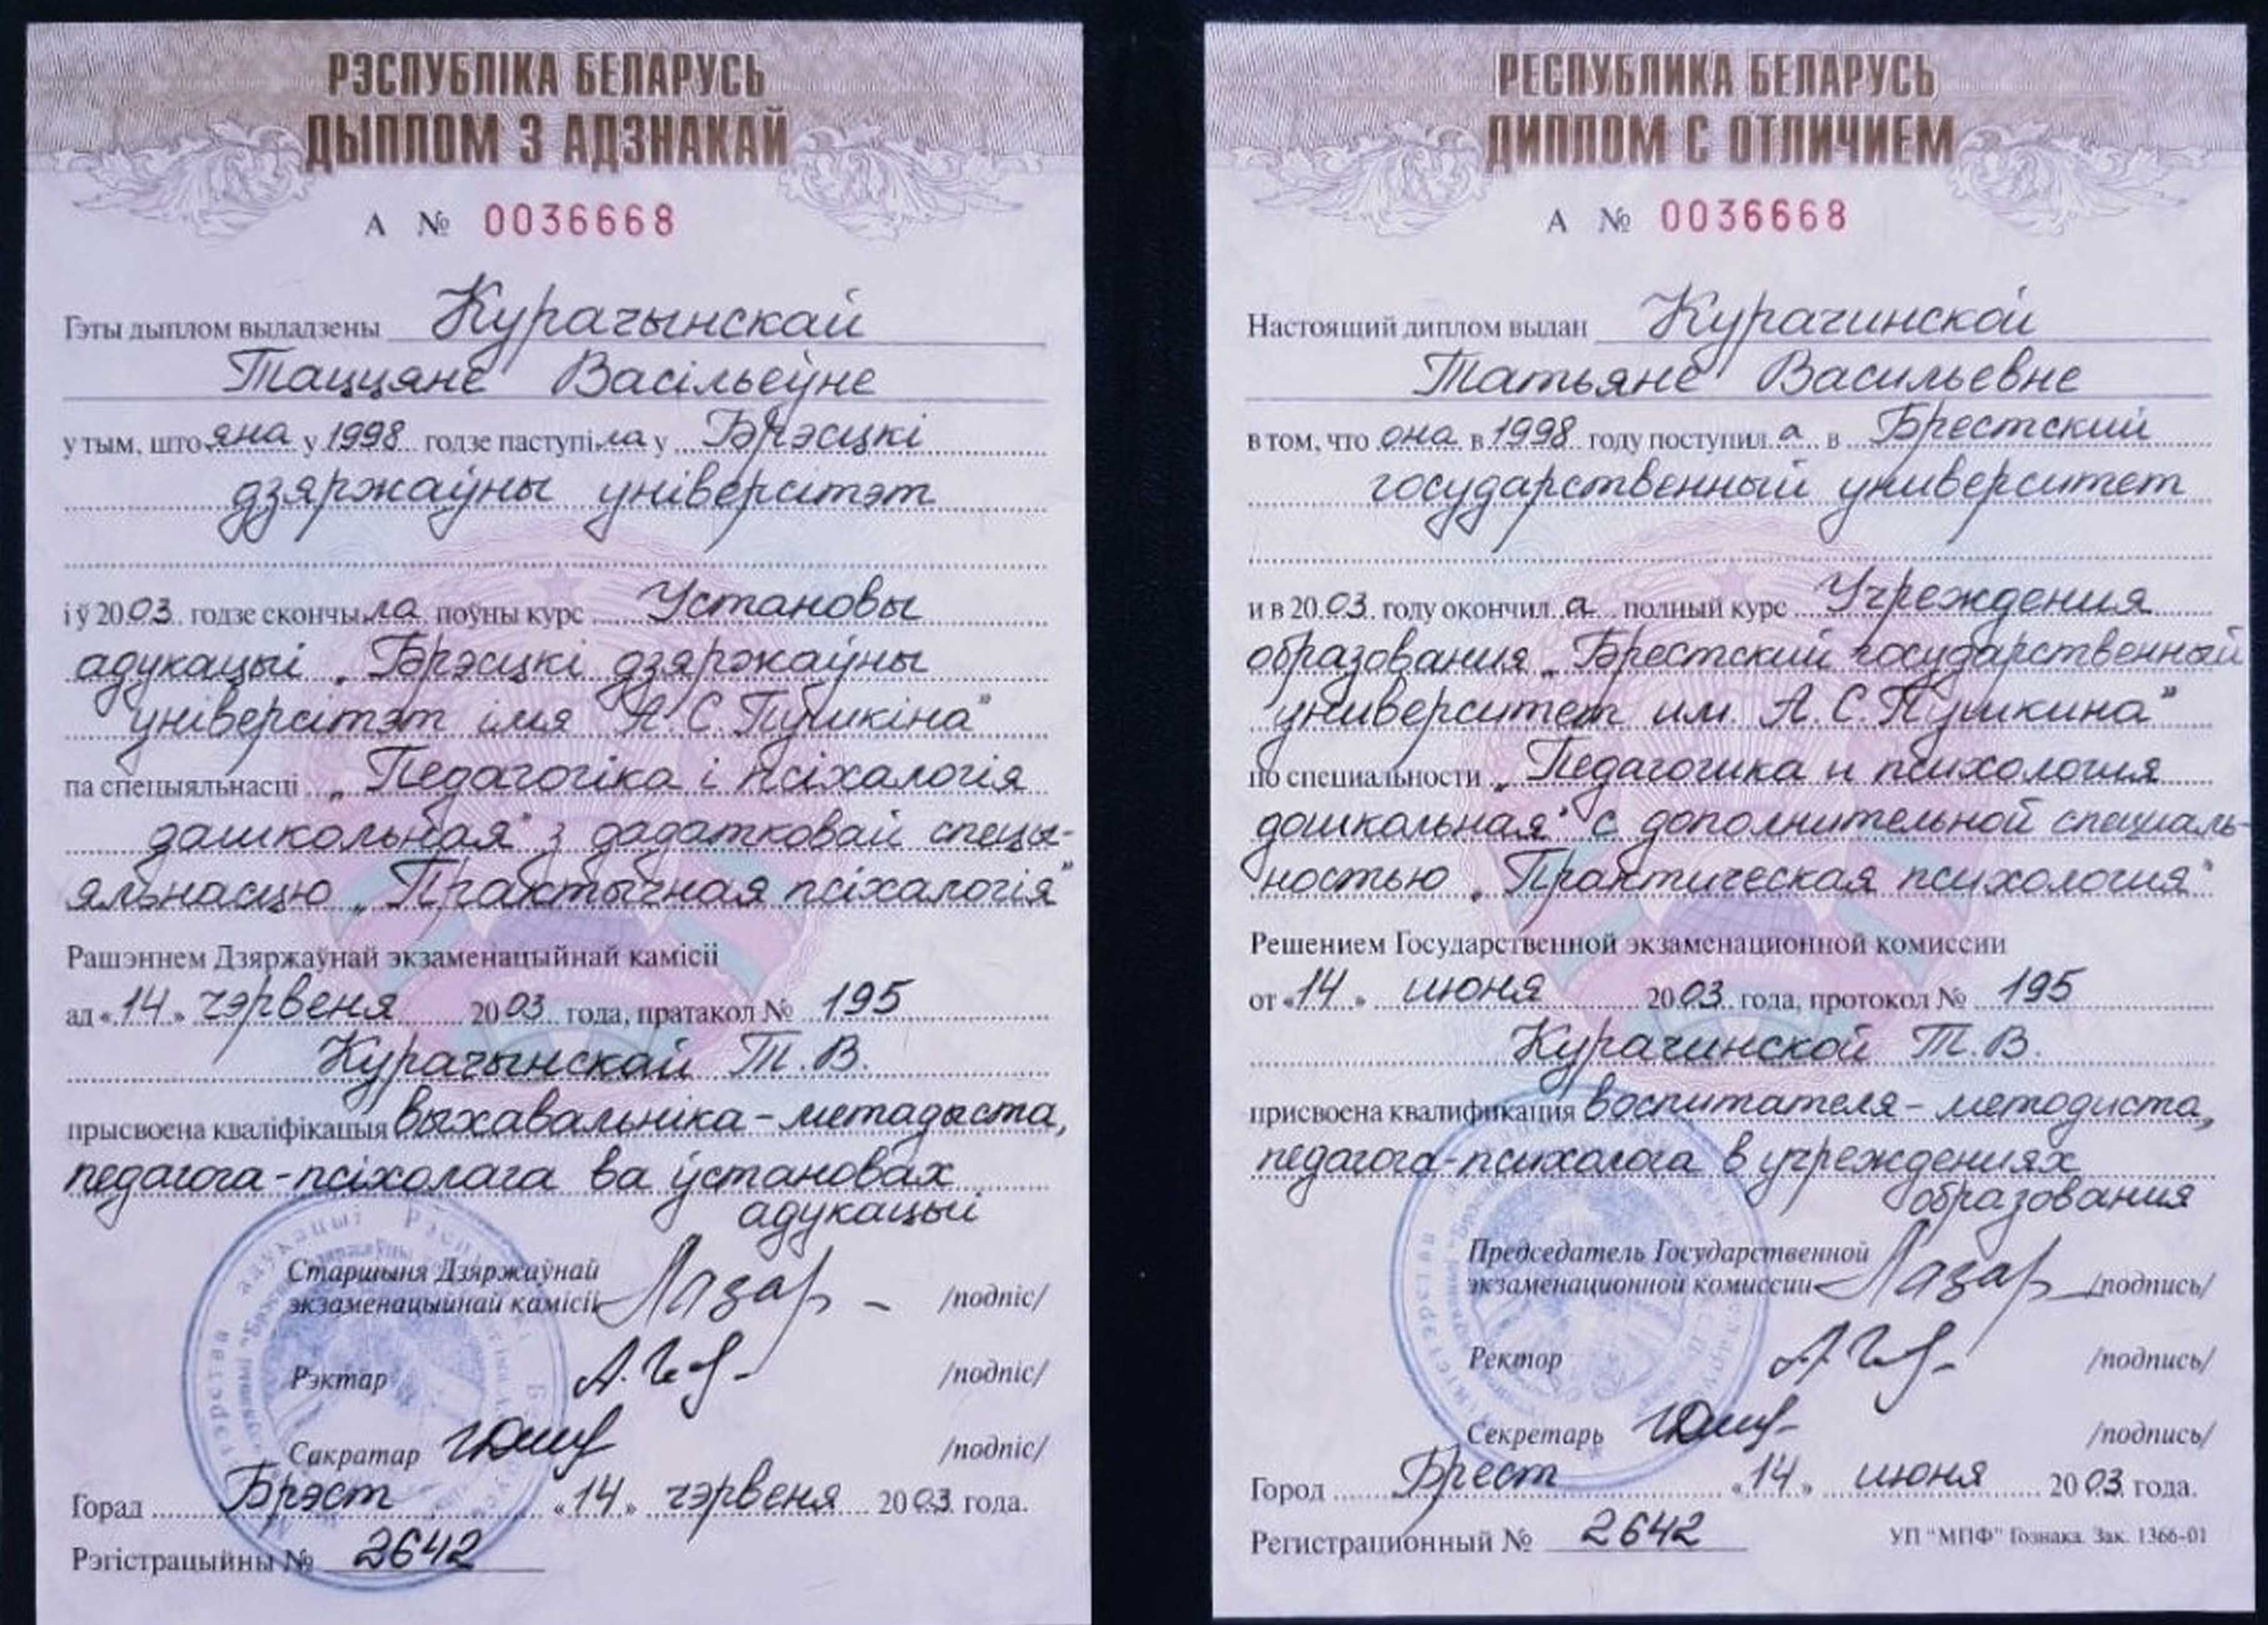 РЭСПУБЛІКА БЕЛАРУСЬ
ДЫПЛОМ З АДЗНАКАЙ
А № 0036668
Гэты дыплом выладзены Курачынскай
Таццяне Васільеўне
у тым, што яна у 1998 годзе паступіла у Брэсцкі
дзяржаўны універсітэт
і ў 2003 годзе скончыла поўны курс Установы
адукацыі „Брэсцкі дзяржаўны
універсітэт імя А.С.Пушкіна”
па спецыяльнасці „Педагогіка і псіхалогія
дашкольная” з дадатковай спецы-
яльнасцю „Практычная псіхалогія”
Рашэннем Дзяржаўнай экзаменацыйнай камісіі
ад «14» чэрвеня 2003 года, пратакол № 195
Курачынскай Т.В.
прысвоена кваліфікацыя выхавальніка-метадыста,
педагога-псіхолага ва ўстановах
адукацыі
Старшыня Дзяржаўнай
экзаменацыйнай камісіі Лазар /подпіс/
Рэктар /подпіс/
Сакратар /подпіс/
Горад Брэст «14» чэрвеня 2003 года.
Рэгістрацыйны № 2642
РЕСПУБЛИКА БЕЛАРУСЬ
ДИПЛОМ С ОТЛИЧИЕМ
А № 0036668
Настоящий диплом выдан Курачинской
Татьяне Васильевне
в том, что она в 1998 году поступила в Брестский
государственный университет
и в 2003 году окончила полный курс Учреждения
образования „Брестский государственный
университет им. А.С.Пушкина”
по специальности „Педагогика и психология
дошкольная” с дополнительной специаль-
ностью „Практическая психология”
Решением Государственной экзаменационной комиссии
от «14» июня 2003 года, протокол № 195
Курачинской Т.В.
присвоена квалификация воспитателя-методиста,
педагога-психолога в учреждениях
образования
Председатель Государственной
экзаменационной комиссии Лазар /подпись/
Ректор /подпись/
Секретарь /подпись/
Город Брест «14» июня 2003 года.
Регистрационный № 2642
УП "МПФ" Гознака. Зак. 1366-01